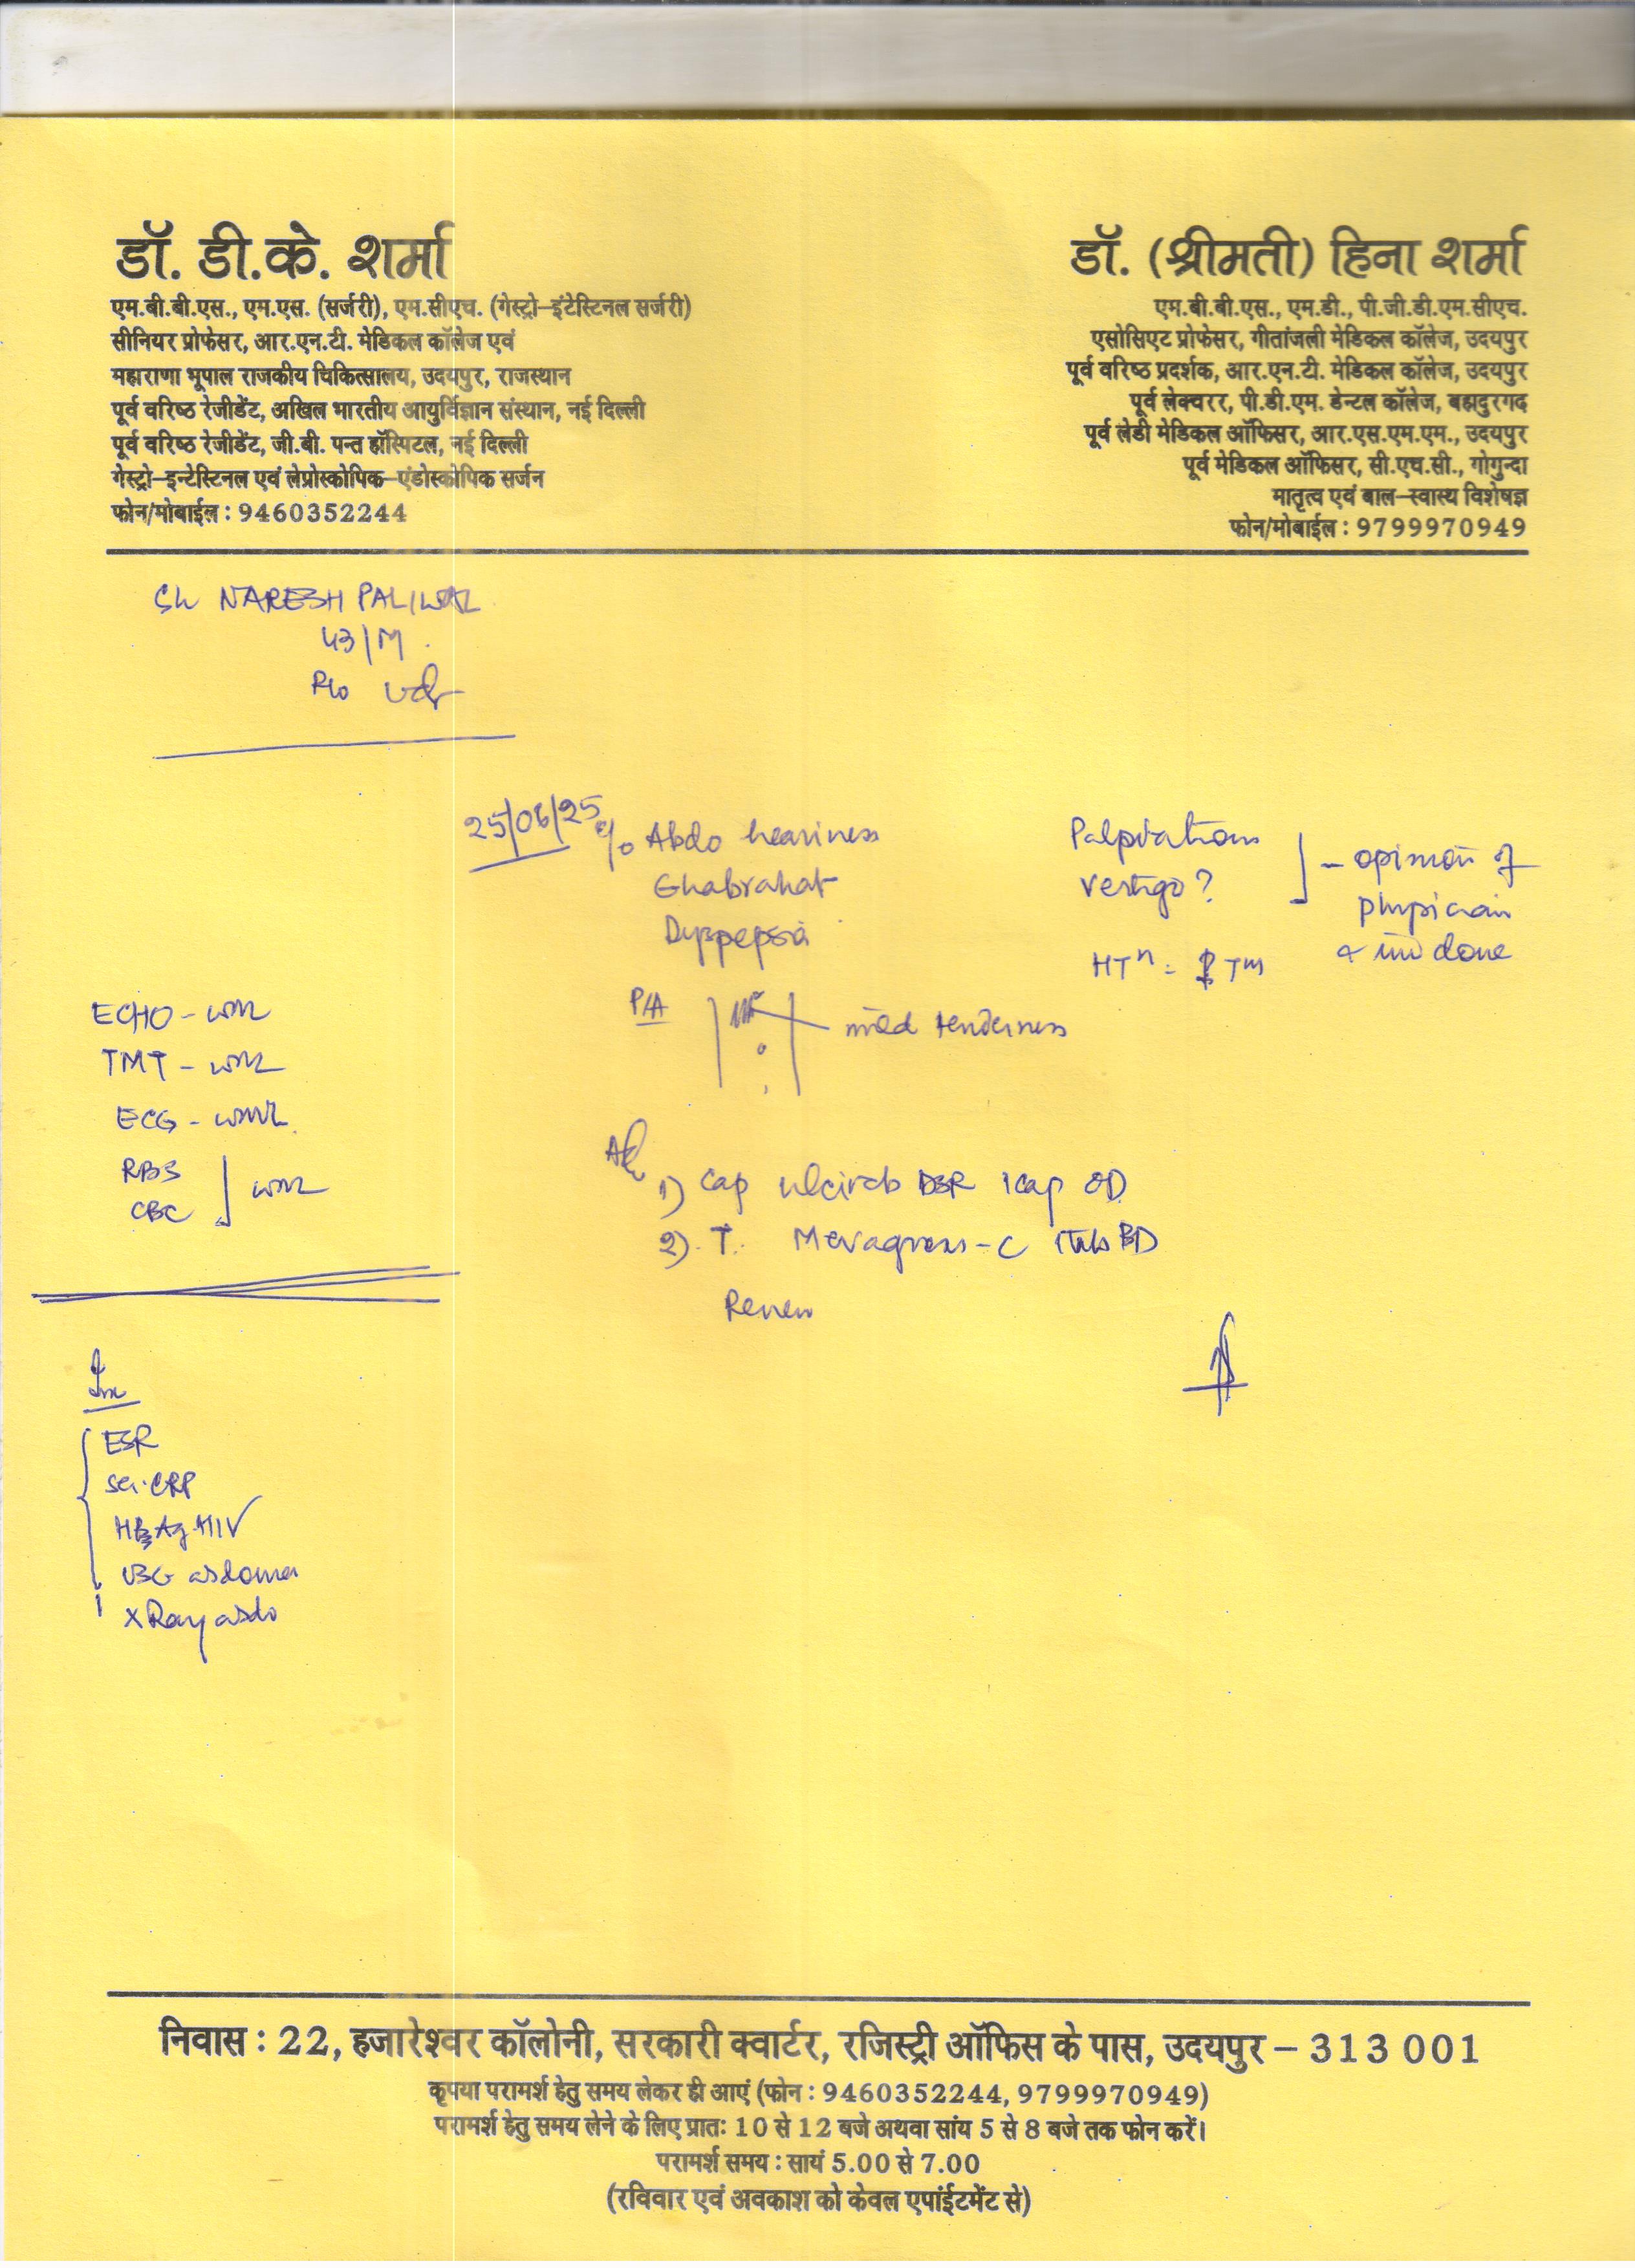 डॉ. डी.के. शर्मा
एम.बी.बी.एस., एम.एस. (सर्जरी), एम.सीएच. (गेस्ट्रो-इंटेस्टिनल सर्जरी)
सीनियर प्रोफेसर, आर.एन.टी. मेडिकल कॉलेज एवं
महाराणा भूपाल राजकीय चिकित्सालय, उदयपुर, राजस्थान
पूर्व वरिष्ठ रेजीडेंट, अखिल भारतीय आयुर्विज्ञान संस्थान, नई दिल्ली
पूर्व वरिष्ठ रेजीडेंट, जी.बी. पन्त हॉस्पिटल, नई दिल्ली
गेस्ट्रो-इन्टेस्टिनल एवं लेप्रोस्कोपिक-एंडोस्कोपिक सर्जन
फोन/मोबाईल : 9460352244
डॉ. (श्रीमती) हिना शर्मा
एम.बी.बी.एस., एम.डी., पी.जी.डी.एम.सीएच.
एसोसिएट प्रोफेसर, गीतांजली मेडिकल कॉलेज, उदयपुर
पूर्व वरिष्ठ प्रदर्शक, आर.एन.टी. मेडिकल कॉलेज, उदयपुर
पूर्व लेक्चरर, पी.डी.एम. डेन्टल कॉलेज, बहादुरगढ़
पूर्व लेडी मेडिकल ऑफिसर, आर.एस.एम.एम., उदयपुर
पूर्व मेडिकल ऑफिसर, सी.एच.सी., गोगुन्दा
मातृत्व एवं बाल-स्वास्थ विशेषज्ञ
फोन/मोबाईल : 9799970949
Sh NARESH PALIWAL
43/M
R/o Udr
25/06/25
c/o Abdo heaviness
Ghabrahat
Dyspepsia
Palpitations
Vertigo?
- opinion of
physician
done
HTn
P/A
mild tenderness
ECHO - WNL
TMT - WNL
ECG - WNL
RBS
CBC
WNL
1) Cap DSR 1 cap OD
2) T. 1 tab BD
Review
Inv
ESR
Se. CRP
HBsAg HIV
USG abdomen
X Ray abdo
निवास : 22, हजारेश्वर कॉलोनी, सरकारी क्वार्टर, रजिस्ट्री ऑफिस के पास, उदयपुर - 313 001
कृपया परामर्श हेतु समय लेकर ही आएं (फोन : 9460352244, 9799970949)
परामर्श हेतु समय लेने के लिए प्रातः 10 से 12 बजे अथवा सांय 5 से 8 बजे तक फोन करें।
परामर्श समय : सायं 5.00 से 7.00
(रविवार एवं अवकाश को केवल एपांईटमेंट से)